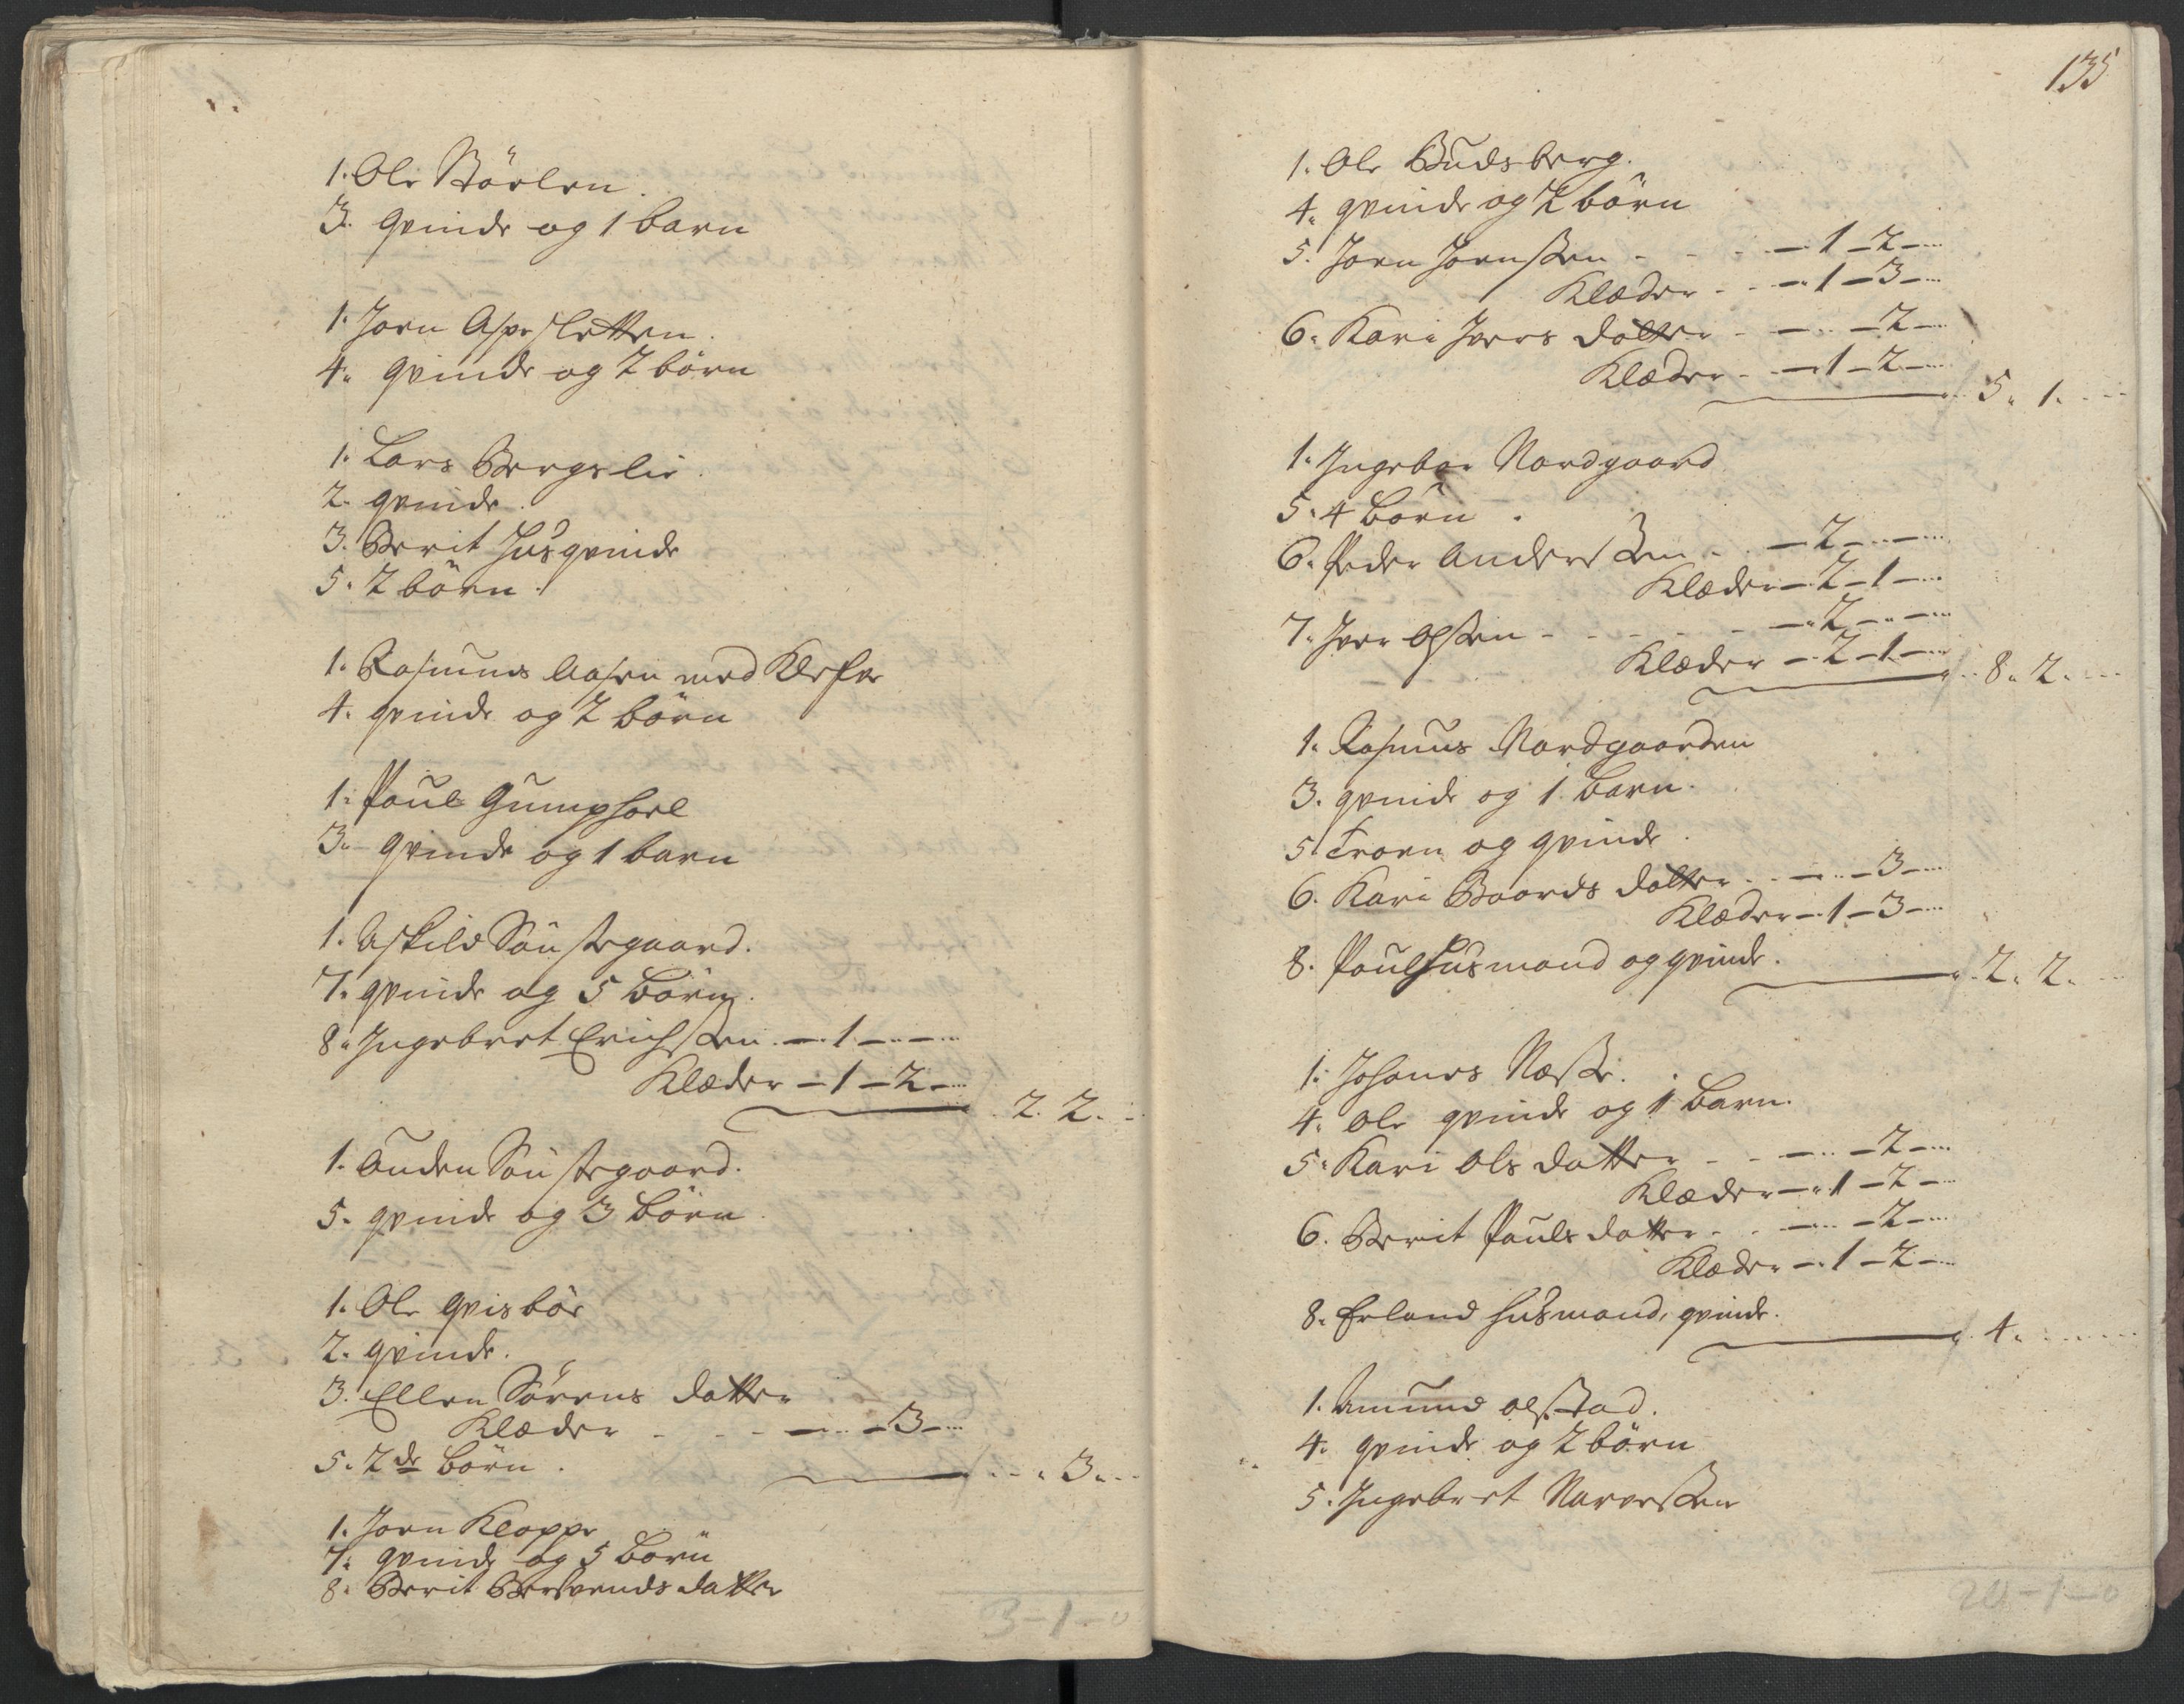 1. Ole Störlen.
3. Qvinde og 1 barn
1. Joen Aspesletten.
4. Qvinde og 2 börn
1. Lars Bergs lie.
2. qvinde.
3. Berit Husqvinde
5. 2 börn.
1. Rasmus Aasen med
4. qvinde og 2 börn
1. Poul Gumphoel
3. Qvinde og 1 barn
1. Askild Söustegaard.
7. qvinde og 5 börn.
8. Ingebret Erichssen. — 1 — —
Klæder — 1 — 2 —
2. 2.
1. Auden Söustegaard.
5. qvinde og 3 börn.
1. Ole Qvisböe
2. qvinde.
3. Ellen Sörens datter
Klæder - - - — — 3 —
5. 2de börn.
3.
1. Joen Kloppe
7. qvinde og 5 börn
8. Berit Bersvends datter
3-1-0
135
1. Ole Budsberg.
4. qvinde og 2 börn
5. Joen Joenssen - - - — 1 — 2 —
Klæder - - — 1 — 3 —
6. Kari Ivers datter - — — 2 —
Klæder - — 1 — 2 —
5. 1.
1. Ingebor Nordgaard
5. 4 börn.
6. Peder Anderssen - - — 2 — —
Klæder — 2 — 1 —
7. Iver Olssen - - - - - — 2 — —
Klæder — 2 — 1 —
8. 2.
1. Rasmus Nordgaarden
3. qvinde og 1. barn.
5. Troen og qvinde.
6. Kari Baards datter - - — — 3 —
Klæder — 1 — 3 —
8. Poul Husmand og qvinde.
2. 2.
1. Johanes Næsse.
4. Ole qvinde og 1 barn.
5. Kari Ols datter - - — — 2 —
Klæder — 1 — 2 —
6. Berit Pouls datter - - — — 2 —
Klæder — 1 — 2 —
8. Erland Husmand, qvinde.
4.
1. Amund Olstad.
4. qvinde og 2 börn
5. Ingebret Narvessen
20-1-0